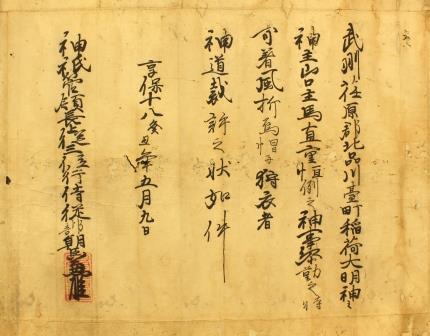 武州荏原郡北品川臺町稲荷大明神之
神主山口主馬直重恒例之神事勤之時
可着風折烏帽子狩衣者
神道裁許之状如件
享保十八癸丑年五月九日
神祇管領長上従三位行侍従卜部朝臣兼雄